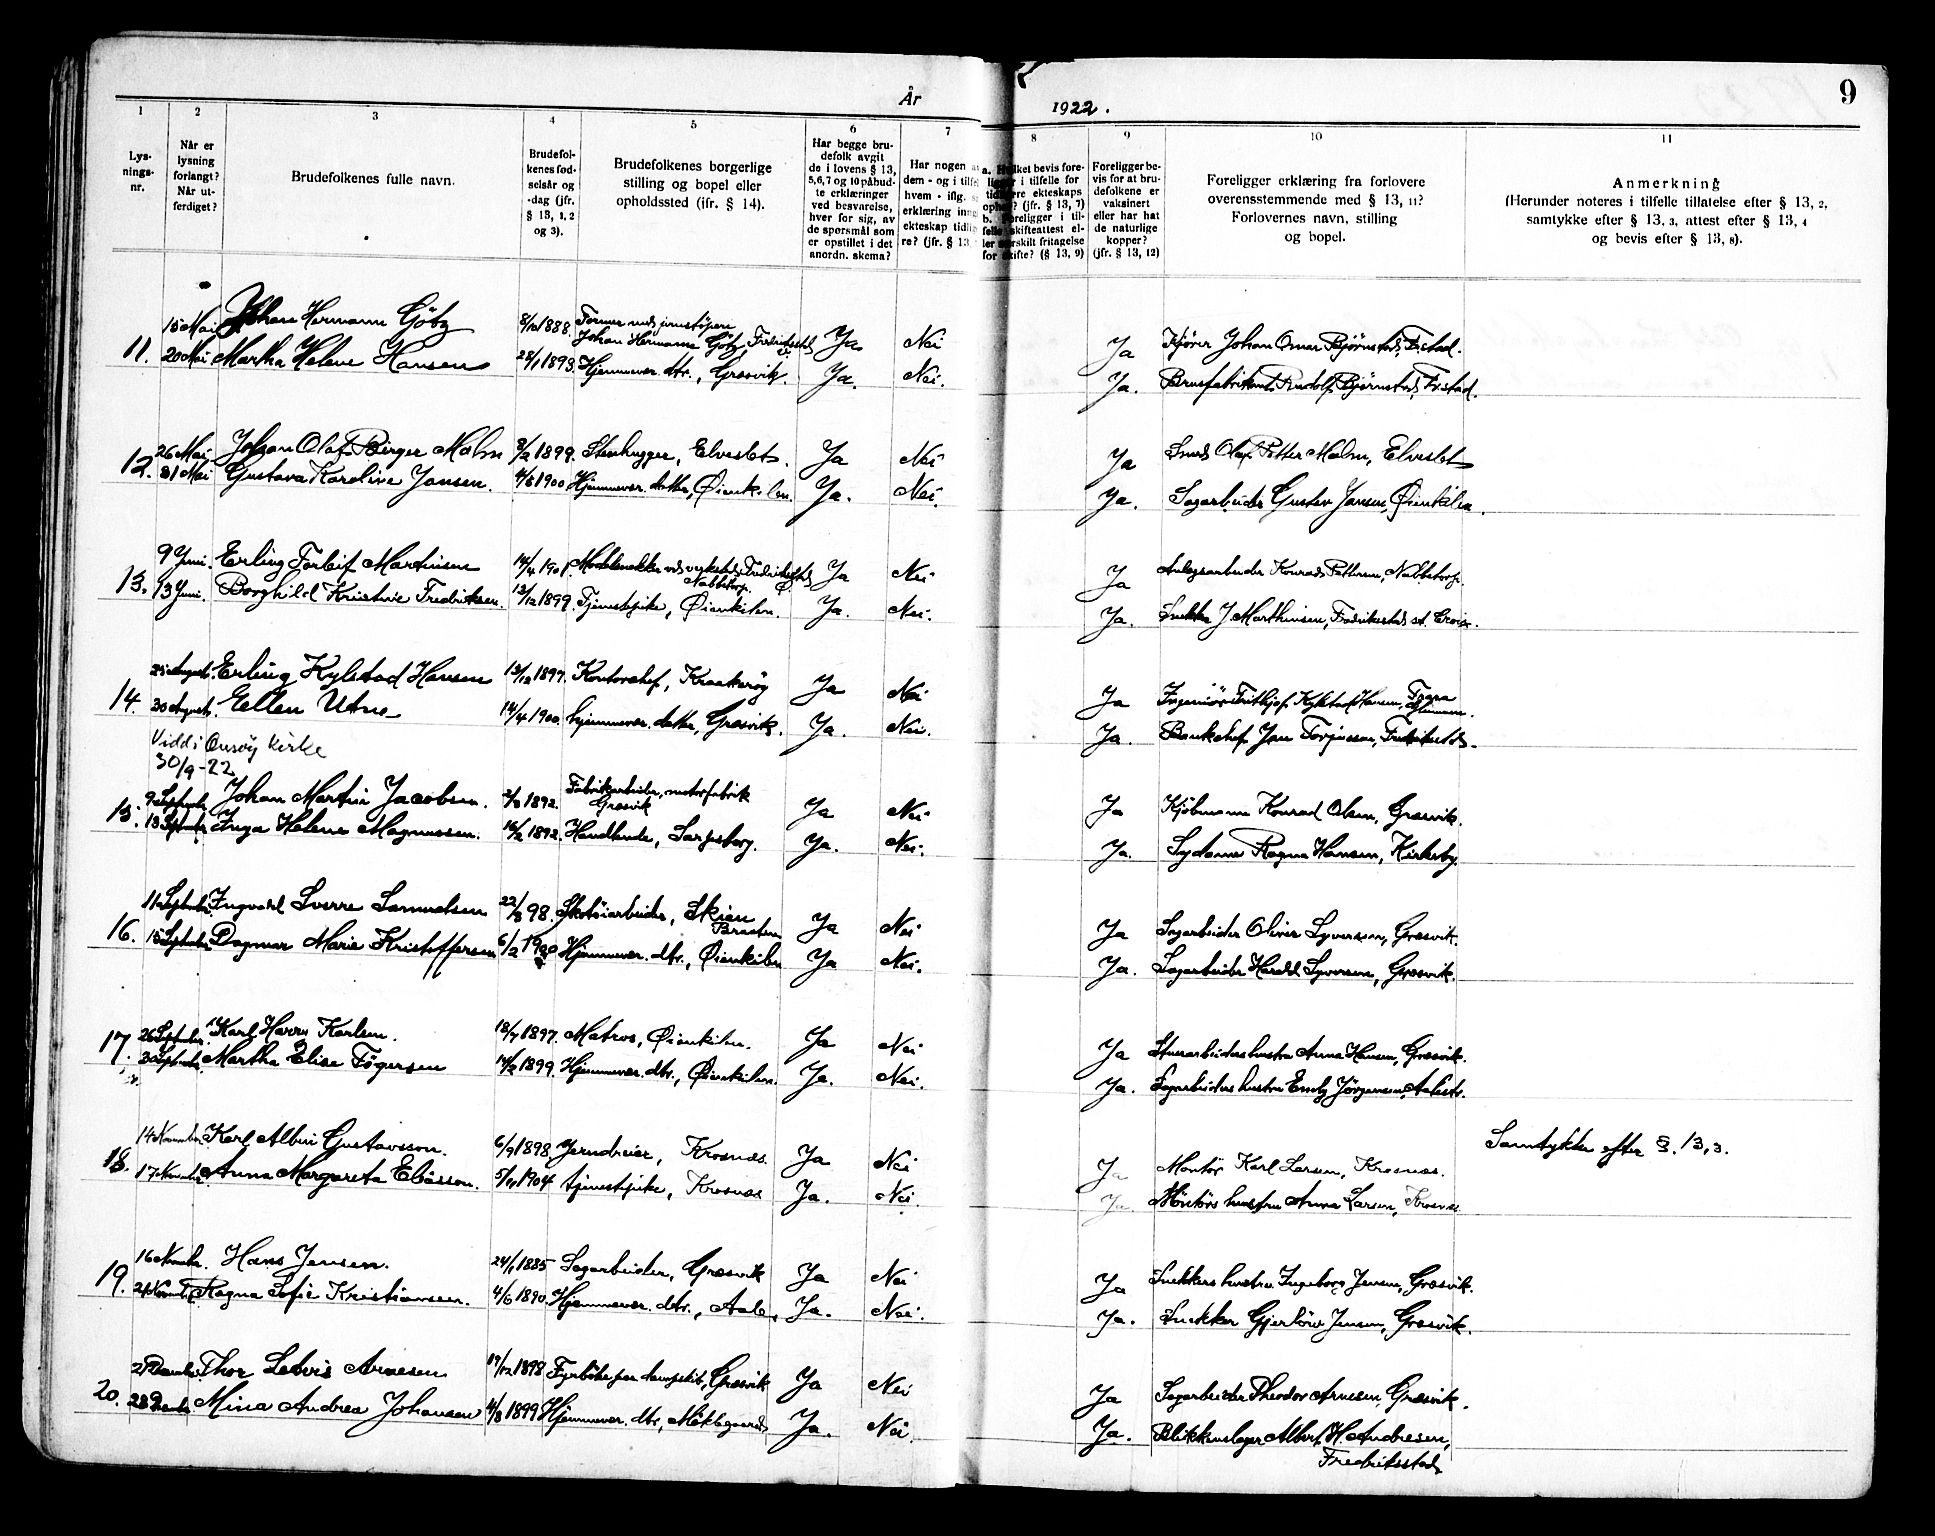 9
År 1922.
1 2 3 4 5 6 7 8 9 10 11
Lys-
nings-
nr.
Når er
lysning
forlangt?
Når ut-
ferdiget?
Brudefolkenes fulle navn.
Brudefol-
kenes fød-
selsår og
-dag (jfr.
§ 13, 1, 2
og 3).
Brudefolkenes borgerlige
stilling og bopel eller
opholdssted (jfr. § 14).
Har begge bru-
defolk avgit
de i lovens § 13,
5,6,7 og 10 påbud-
te erklæringer
ved besvarelse,
hver for sig, av
de spørsmål som
er opstillet i det
anordn. skema?
Har nogen a
dem - og i tilf
hvem - iflg.
erklæring inn
ekteskap tidli
re? (jfr. § 13
a. Hvilket bevis fore-
ligger i tilfelle for
tidligere ekteskaps
ophør? (jfr. § 13, 7)
b. Foreligger i til-
felle skifteattest el-
ler særskilt fritagelse
for skifte? (§ 13, 9)
Foreligger be-
vis for at bru-
defolkene er
vaksinert
eller har hat
de naturlige
kopper?
(jfr. § 13, 12)
Foreligger erklæring fra forlovere
overensstemmende med § 13, 11?
Forlovernes navn, stilling
og bopel.
Anmerkning
(Herunder noteres i tilfelle tillatelse efter § 13, 2,
samtykke efter § 13, 3, attest efter § 13, 4
og bevis efter § 13, 8).
15 Mai Johan Hermann Götz 8/10 1888. Former ved jernstøperi Johan Hermann Götz, Fredriksstad Ja Nei Ja Kjører Johan Omar Bjørnstad, Fr.stad.
11. 20 Mai Martha Helene Hansen 28/1 1893. Hjemmevær. dtr., Græsvik. Ja. Nei. Ja. Brusfabrikant Rudolf Bjørnstad, Fr.stad.
26 Mai Johan Olaf Birger Malm 8/2 1899. Stenhugger, Elveslet. Ja Nei Ja Smed Olaf Petter Malm, Elveslet
12. 31 Mai Gustava Karoline Jansen. 4/5 1900 Hjemmevær. datter, Øienkilen. Ja. Nei. Ja. Sagarbeider Gustav Jansen, Øienkilen.
9 Juni. Erling Torleif Martinsen 14/4 1901. Modelsnekker ved verksted, Fredriksstad Ja Nei Ja Anlegsarbeider Konrad Pettersen, Nabbetorp.
Nabbetorp. Ø.
13. 13 Juni. Borghild Kristine Fredriksen. 12/12 1899. Tjenestepike, Øienkilen. Ja. Nei. Ja. Snekker J. Marthinsen, Fredriksstad st. Croix.
25 August. Erling Kylstad Hansen 13/12 1897. Kontorchef, Kraakerøy Ja Nei Ja Ingeniør Frithjof Kylstad Hansen,
14. 30 August. Ellen Utne 14/4 1900. hjemmevær. datter, Græsvik. Ja. Nei. Ja. Bankchef Jan Torjussen, Fredriksstad.
Vidd i Onsøy kirke
30/9-22
9 September Johan Martin Jacobsen. 2/8 1892. Fabrikarbeider, motorfabrik Græsvik Ja Nei Ja Kjøbmann Konrad Olsen, Græsvik.
15. 13 September Inga Helene Magnussen. 16/2 1892. Handlende, Sarpsborg. Ja. Nei. Ja. Sydame Ragna Hansen, Kirkeby.
11 September Ingvald Sverre Samuelsen 22/3 98. Skotøiarbeider, Skien Ja Nei Ja Sagarbeider Oliver Syversen, Græsvik.
16. 15 September Dagmar Marie Kristoffersen 6/2 1900 Hjemmevær. dtr., Øienkilen Ja Nei. Ja. Sagarbeider Harald Syversen, Græsvik.
26 September. Karl Harry Karlsen. 18/7 1897. Matros, Øienkilen. Ja Nei Ja Stuerarbeiders hustru Anna Hansen, Græsvik.
17. 30 September. Martha Elise Tögersen 14/2 1899. Hjemmevær. dtr., Øienkilen. Ja. Nei. Ja. Sagarbeiders hustru Emly Jörgensen, Aalestr.
14 November Karl Albin Gustavsson. 6/9 1898. Jerndreier, Krosnæs. Ja Nei Ja Montør Karl Larsen, Krosnæs. Samtykke efter §. 13, 3.
18. 17 November. Anna Margareta Eliasson. 5/4 1904 tjenestepike, Krosnæs Ja. Nei. Ja. Montørs hustru Anna Larsen, Krosnæs.
16 Novembr. Hans Jensen. 24/1 1885 Sagarbeider, Græsvik Ja Nei Ja Snekkers hustru Ingeborg Jensen, Græsvik.
19. 21 Novemb. Ragna Sofie Kristiansen. 4/6 1890. Hjemmevær. dtr., Aale, Ja. Nei. Ja. Snekker Gjerlöw Jensen, Græsvik.
Thor Ledvis Arnesen 17/12 1898 Fyrbøter paa dampskib, Græsvik Ja Nei Ja Sagarbeider Theodor Arnesen, Græsvik.
20. 28 Mina Andrea Johansen 4/8 1899 Hjemmevær. dtr, Möklegaard Ja. Nei. Ja. Blikkenslager Albert H. Andresen,
Fredriksstad